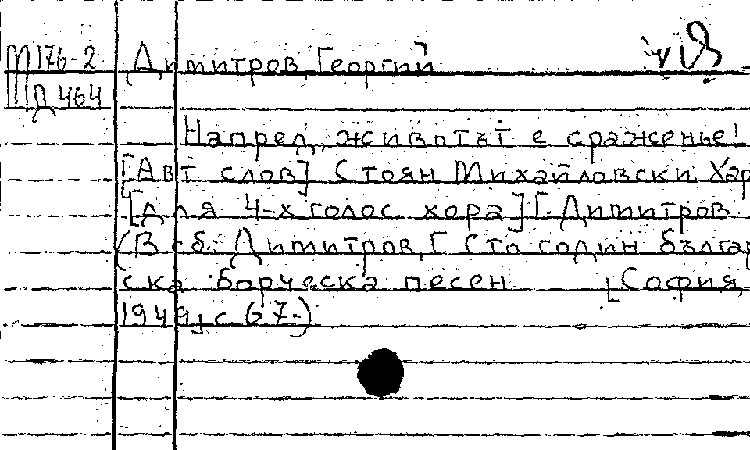 М176-2 Димитров, Георгий
Д 464
Напред, животът е сраженье!
[Авт слов] Стоян Михайловски Хар
[для 4-х голос хора] Г. Димитров
(В сб. Димитров, Г Сто годин българ
ска борческа песен [София,
1949], с 67.)